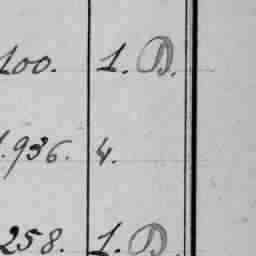 100. 1. D.
1.936. 4.
258. 1. D.